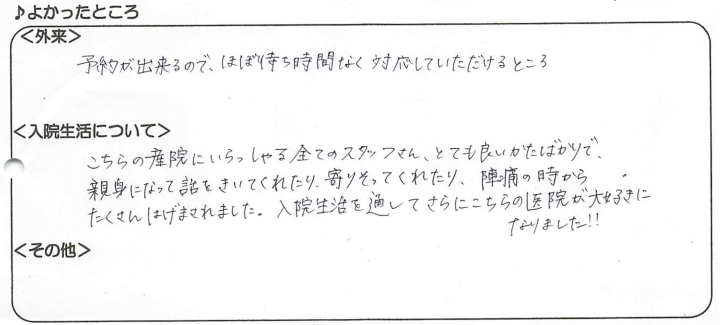 ♪よかったところ
＜外来＞
予約が出来るので、ほぼ待ち時間なく対応していただけるところ
＜入院生活について＞
こちらの産院にいらっしゃる全てのスタッフさん、とても良いかたばかりで、
親身になって話をきいてくれたり、寄りそってくれたり、陣痛の時から
たくさんはげまされました。入院生活を通してさらにこちらの医院が大好きに
なりました!!
＜その他＞